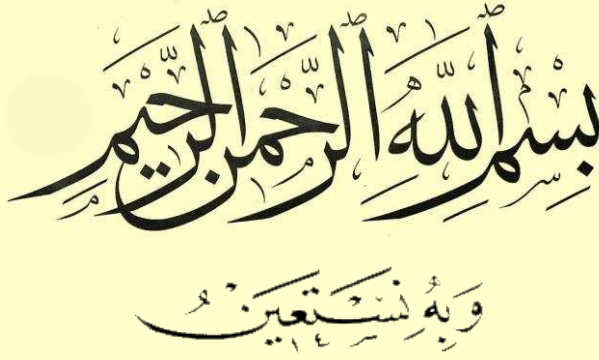 بِسْمِ اللَّهِ الرَّحْمٰنِ الرَّحِيمِ
وَبِهِ نَسْتَعِينُ